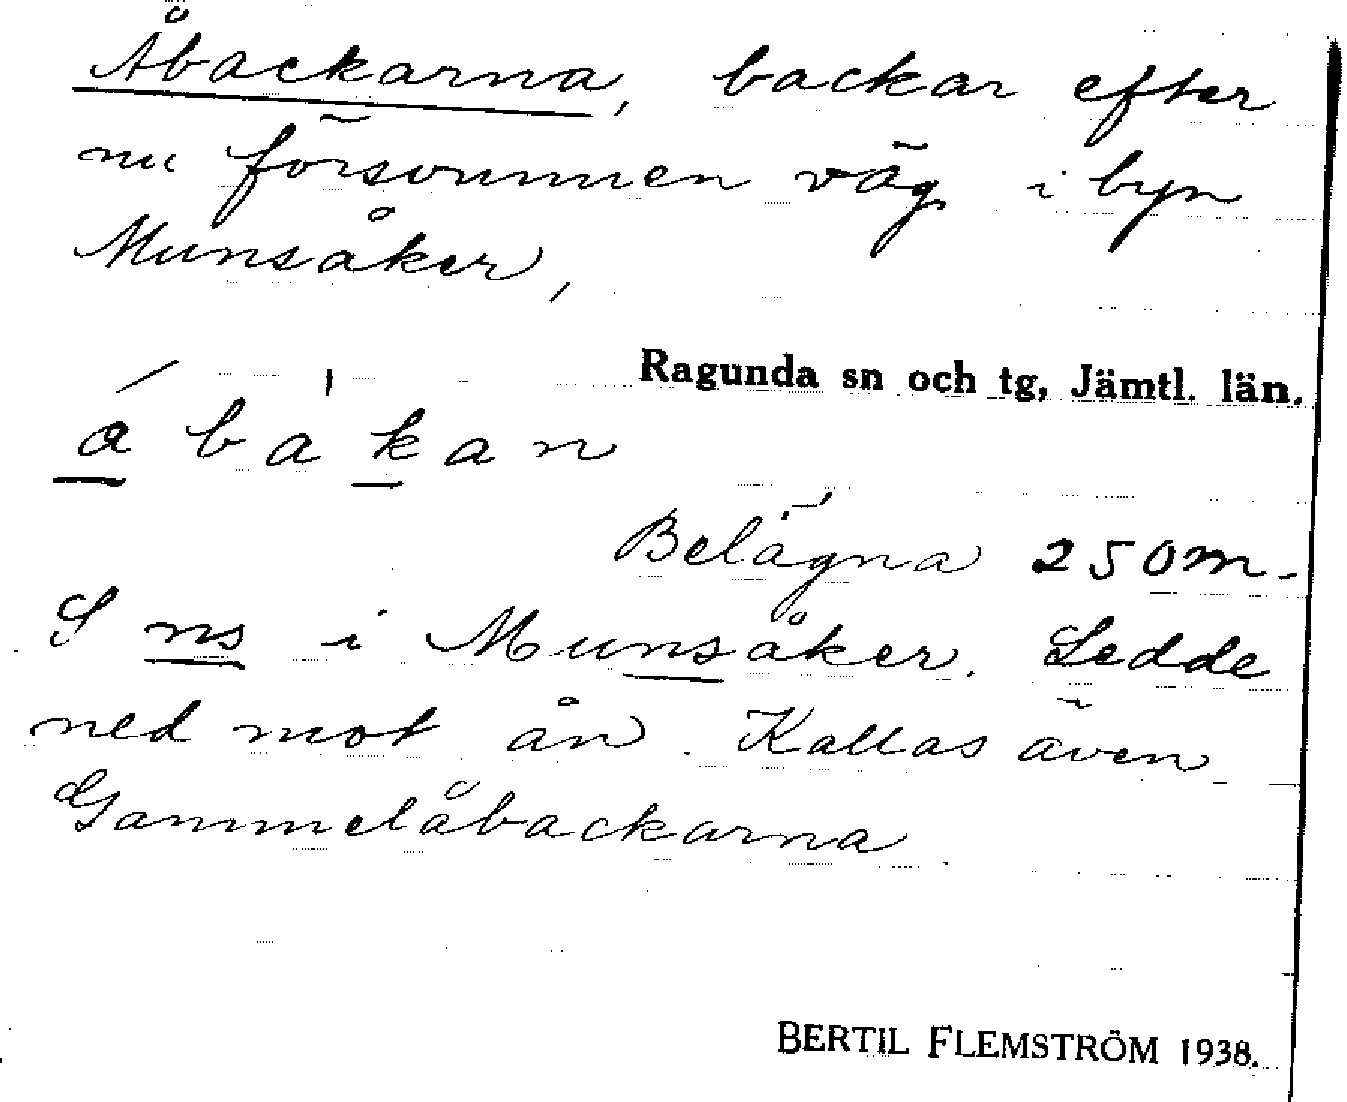 Åbackarna, backar efter
nu försvunnen väg i byn
Munsåker,
Ragunda sn och tg, Jämtl. län.
á b a ̍k a n
Belägna 250 m.
S ns i Munsåker. Ledde
ned mot ån. Kallas även
Gammelåbackarna
BERTIL FLEMSTRÖM 1938.